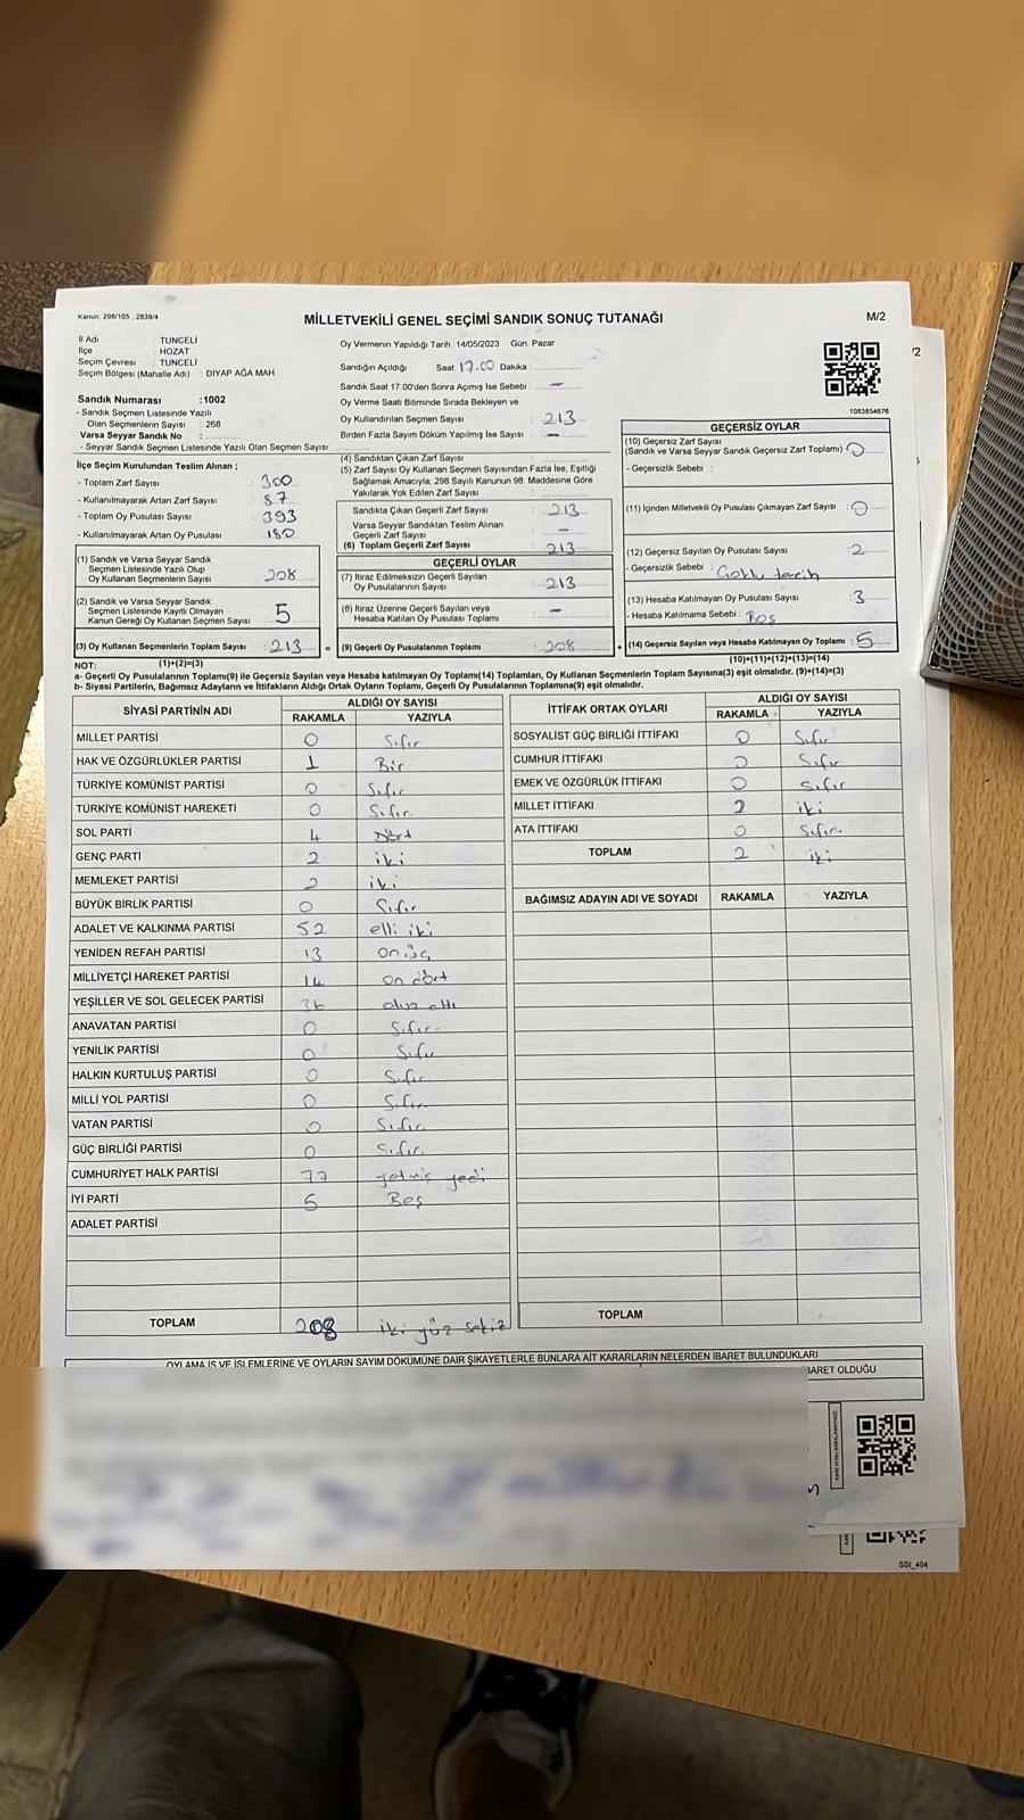 Kanun: 298/105 , 2839/4
MİLLETVEKİLİ GENEL SEÇİMİ SANDIK SONUÇ TUTANAĞI
M/2
İl Adı TUNCELİ
İlçe HOZAT
Seçim Çevresi TUNCELİ
Seçim Bölgesi (Mahalle Adı) : DIYAP AĞA MAH
Sandık Numarası :1002
- Sandık Seçmen Listesinde Yazılı
Olan Seçmenlerin Sayısı : 268
Varsa Seyyar Sandık No :
- Seyyar Sandık Seçmen Listesinde Yazılı Olan Seçmen Sayısı
İlçe Seçim Kurulundan Teslim Alınan ;
- Toplam Zarf Sayısı 300
- Kullanılmayarak Artan Zarf Sayısı 87
- Toplam Oy Pusulası Sayısı 393
- Kullanılmayarak Artan Oy Pusulası 180
(1) Sandık ve Varsa Seyyar Sandık
Seçmen Listesinde Yazılı Olup
Oy Kullanan Seçmenlerin Sayısı 208
(2) Sandık ve Varsa Seyyar Sandık
Seçmen Listesinde Kayıtlı Olmayan
Kanun Gereği Oy Kullanan Seçmen Sayısı 5
(3) Oy Kullanan Seçmenlerin Toplam Sayısı : 213
Oy Vermenin Yapıldığı Tarih: 14/05/2023 Gün: Pazar
Sandığın Açıldığı Saat 17.00 Dakika
Sandık Saat 17:00'den Sonra Açımış İse Sebebi –
Oy Verme Saati Bitiminde Sırada Bekleyen ve
Oy Kullandırılan Seçmen Sayısı 213
Birden Fazla Sayım Döküm Yapılmış İse Sayısı –
(4) Sandıktan Çıkan Zarf Sayısı
(5) Zarf Sayısı Oy Kullanan Seçmen Sayısından Fazla İse, Eşitliği
Sağlamak Amacıyla; 298 Sayılı Kanunun 98. Maddesine Göre
Yakılarak Yok Edilen Zarf Sayısı
Sandıkta Çıkan Geçerli Zarf Sayısı 213
Varsa Seyyar Sandıktan Teslim Alınan
Geçerli Zarf Sayısı –
(6) Toplam Geçerli Zarf Sayısı 213
GEÇERLİ OYLAR
(7) İtiraz Edilmeksizin Geçerli Sayılan
Oy Pusulalarının Sayısı 213
(8) İtiraz Üzerine Geçerli Sayılan veya
Hesaba Katılan Oy Pusulası Toplamı –
= (9) Geçerli Oy Pusulalarının Toplamı 208
1083854876
GEÇERSİZ OYLAR
(10) Geçersiz Zarf Sayısı
(Sandık ve Varsa Seyyar Sandık Geçersiz Zarf Toplamı) 0
- Geçersizlik Sebebi :
(11) İçinden Milletvekili Oy Pusulası Çıkmayan Zarf Sayısı : 0
(12) Geçersiz Sayılan Oy Pusulası Sayısı 2
- Geçersizlik Sebebi :
(13) Hesaba Katılmayan Oy Pusulası Sayısı 3
- Hesaba Katılmama Sebebi : Boş
+ (14) Geçersiz Sayılan veya Hesaba Katılmayan Oy Toplamı : 5
NOT: (1)+(2)=(3) (10)+(11)+(12)+(13)=(14)
a- Geçerli Oy Pusulalarının Toplamı(9) ile Geçersiz Sayılan veya Hesaba katılmayan Oy Toplamı(14) Toplamları, Oy Kullanan Seçmenlerin Toplam Sayısına(3) eşit olmalıdır. (9)+(14)=(3)
b- Siyasi Partilerin, Bağımsız Adayların ve İttifakların Aldığı Ortak Oyların Toplamı, Geçerli Oy Pusulalarının Toplamına(9) eşit olmalıdır.
SİYASİ PARTİNİN ADI ALDIĞI OY SAYISI
RAKAMLA YAZIYLA
MİLLET PARTİSİ 0 Sıfır
HAK VE ÖZGÜRLÜKLER PARTİSİ 1 Bir
TÜRKİYE KOMÜNİST PARTİSİ 0 Sıfır
TÜRKİYE KOMÜNİST HAREKETİ 0 Sıfır
SOL PARTİ 4 Dört
GENÇ PARTİ 2 iki
MEMLEKET PARTİSİ 2 iki
BÜYÜK BİRLİK PARTİSİ 0 Sıfır
ADALET VE KALKINMA PARTİSİ 52 elli iki
YENİDEN REFAH PARTİSİ 13 on üç
MİLLİYETÇİ HAREKET PARTİSİ 14 on dört
YEŞİLLER VE SOL GELECEK PARTİSİ 36 otuz altı
ANAVATAN PARTİSİ 0 Sıfır
YENİLİK PARTİSİ 0 Sıfır
HALKIN KURTULUŞ PARTİSİ 0 Sıfır
MİLLİ YOL PARTİSİ 0 Sıfır
VATAN PARTİSİ 0 Sıfır
GÜÇ BİRLİĞİ PARTİSİ 0 Sıfır
CUMHURİYET HALK PARTİSİ 77 yetmiş yedi
İYİ PARTİ 5 Beş
ADALET PARTİSİ
TOPLAM 208 iki yüz sekiz
İTTİFAK ORTAK OYLARI ALDIĞI OY SAYISI
RAKAMLA YAZIYLA
SOSYALİST GÜÇ BİRLİĞİ İTTİFAKI 0 Sıfır
CUMHUR İTTİFAKI 0 Sıfır
EMEK VE ÖZGÜRLÜK İTTİFAKI 0 Sıfır
MİLLET İTTİFAKI 2 iki
ATA İTTİFAKI 0 Sıfır
TOPLAM 2 iki
BAĞIMSIZ ADAYIN ADI VE SOYADI RAKAMLA YAZIYLA
TOPLAM
OYLAMA İŞ VE İŞLEMLERİNE VE OYLARIN SAYIM DÖKÜMÜNE DAİR ŞİKAYETLERLE BUNLARA AİT KARARLARIN NELERDEN İBARET BULUNDUKLARI
İBARET OLDUĞU
SSI_404
/2